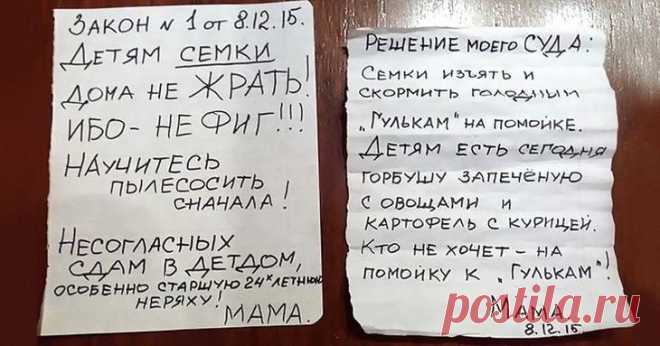 ЗАКОН N 1 от 8.12.15.
ДЕТЯМ СЕМКИ
ДОМА НЕ ЖРАТЬ!
ИБО - НЕ ФИГ!!!
НАУЧИТЕСЬ
ПЫЛЕСОСИТЬ
СНАЧАЛА!
НЕСОГЛАСНЫХ
СДАМ В ДЕТДОМ,
ОСОБЕННО СТАРШУЮ 24х ЛЕТНЮЮ
НЕРЯХУ!
МАМА.
РЕШЕНИЕ МОЕГО СУДА:
СЕМКИ ИЗЪЯТЬ И
СКОРМИТЬ ГОЛОДНЫМ
„ГУЛЬКАМ" НА ПОМОЙКЕ.
ДЕТЯМ ЕСТЬ СЕГОДНЯ
ГОРБУШУ ЗАПЕЧЁНУЮ
С ОВОЩАМИ И
КАРТОФЕЛЬ С КУРИЦЕЙ.
КТО НЕ ХОЧЕТ - НА
ПОМОЙКУ К „ГУЛЬКАМ"!
МАМА
8.12.15.
postila.ru